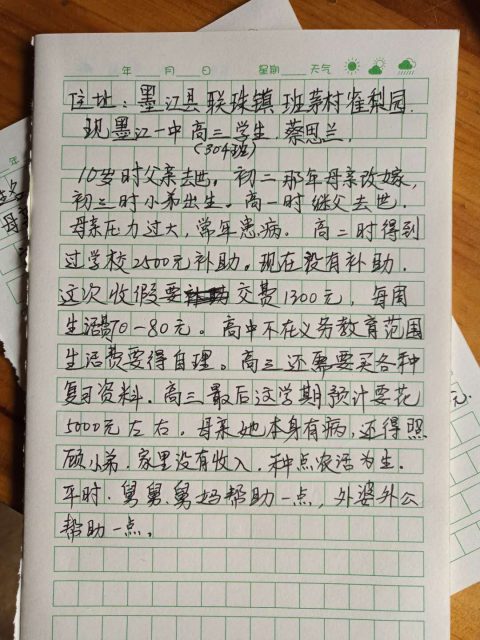 年 月 日 星期 天气
住址：墨江县联珠镇班茅村雀梨园.
现墨江一中高三学生.蔡思兰.
(304班)
10岁时父亲去世，初二那年母亲改嫁，
初三时小弟出生。高一时继父去世.
母亲压力过大，常年患病. 高二时得到
过学校2500元补助。现在没有补助.
这次收假要交费1300元，每周
生活费70-80元。高中不在义务教育范围
生活费要得自理。高三还需要买各种
复习资料.高三最后这学期预计要花
5000元左右.母亲她本身有病，还得照
顾小弟.家里没有收入.种点农活为生.
平时.舅舅.舅妈帮助一点，外婆外公
帮助一点。
年
母亲
元.